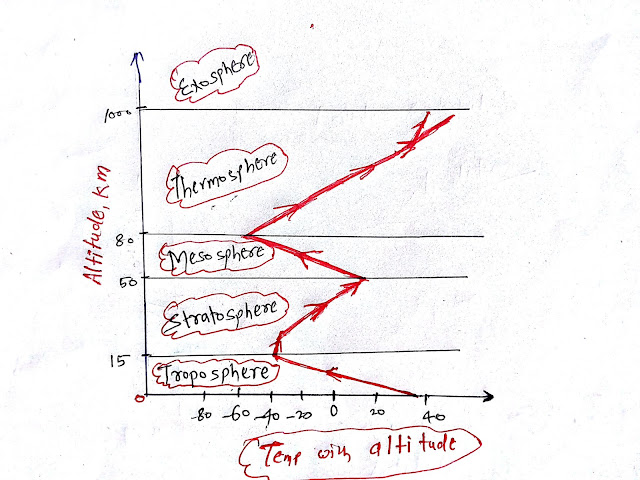 Exosphere
1000
Thermosphere
Altitude, km
80
Mesosphere
50
Stratosphere
15
Troposphere
0
-80 -60 -40 -20 0 20 40
Temp with altitude